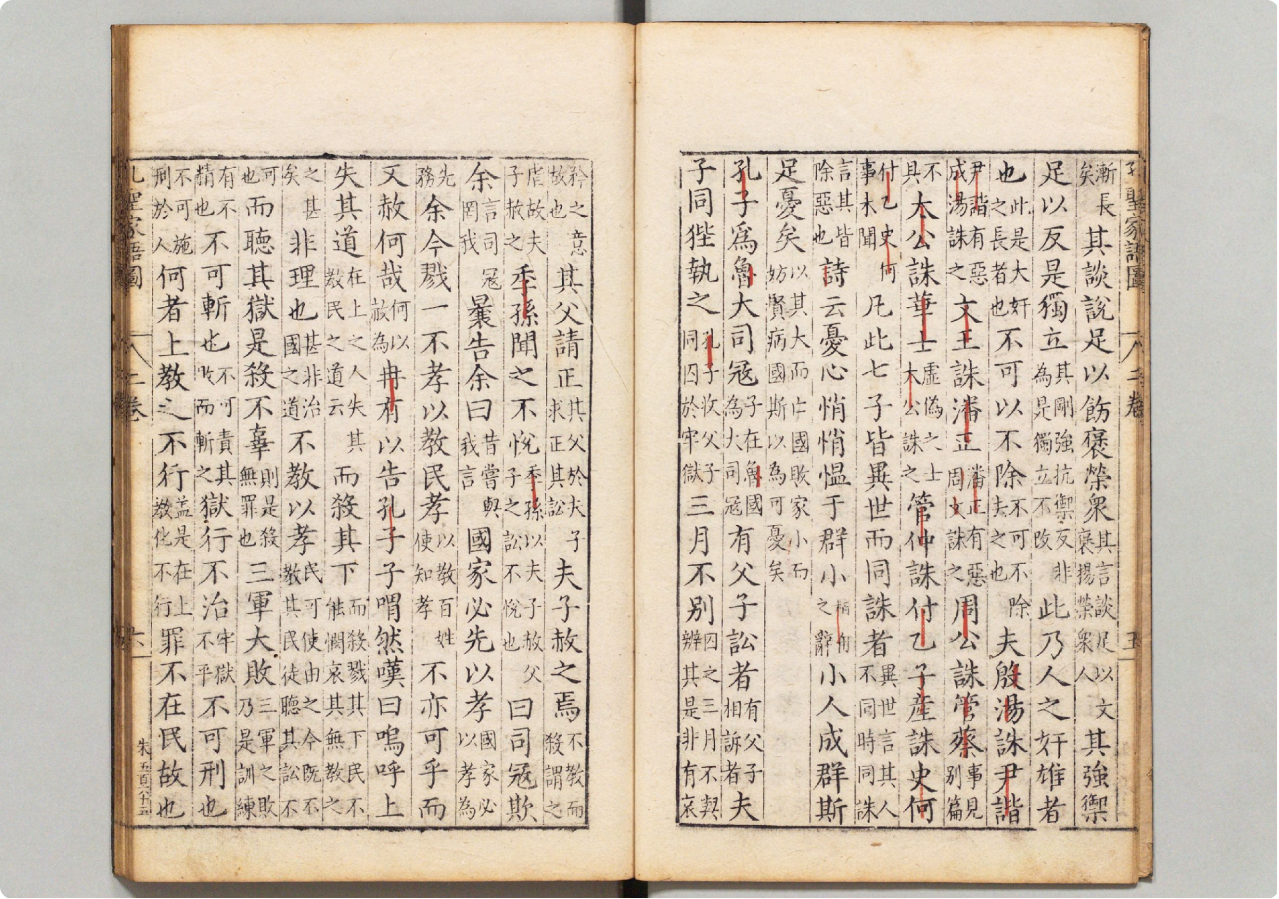 孔聖家語圖 二卷 五
漸長矣其談說足以飾褒榮衆其言談足以文褒揚榮衆人其強禦
足以反是獨立其剛強抗禦反非為是獨立不改此乃人之奸雄者
也此是大奸之長者也不可以不除不可不除去之也夫殷湯誅尹諧
尹諧有惡成湯誅之文王誅潘正潘正有惡周文誅之周公誅管蔡事見別篇
不具太公誅華士虛偽之士太公誅之管仲誅付乙子產誅史何
付乙史何事未聞凡此七子皆異世而同誅者異世言其人不同時同誅
言其皆除惡也詩云憂心悄悄慍于群小之辭小人成群斯
足憂矣以其大而亡國敗家小而妨賢病國斯以為可憂矣
孔子爲魯大司冦孔子在魯國為大司冦有父子訟者有父子相訴者夫
子同狴執之孔子收父子同囚於牢獄三月不别囚之三月不與辨其是非有哀
矜之意故也其父請正其父於夫子求正其訟夫子赦之焉不教而殺謂之
虐故夫子赦之季孫聞之不悅季孫以夫子赦父子之訟不悅也曰司冦欺
余言司冦罔我曩告余曰昔嘗與我言國家必先以孝國家必以孝為
先務余今戮一不孝以教民孝以教百姓使知孝不亦可乎而
又赦何哉何以赦為冉有以告孔子子喟然嘆曰嗚呼上
失其道在上之人失其教民之道云而殺其下而殺戮其下民不能憫哀其無教之
之甚矣非理也甚非治國之道不教以孝民可使由之今既不教其民徒聽其訟不
可也而聽其獄是殺不辜則是殺無罪也三軍大敗三軍之敗乃是訓練
有不精也不可斬也不可責其敗而斬之獄行不治牢獄不平不可刑也
不可施刑於人何者上教之不行蓋是在上教化不行罪不在民故也
孔聖家語圖 二卷 六 朱五百六十三